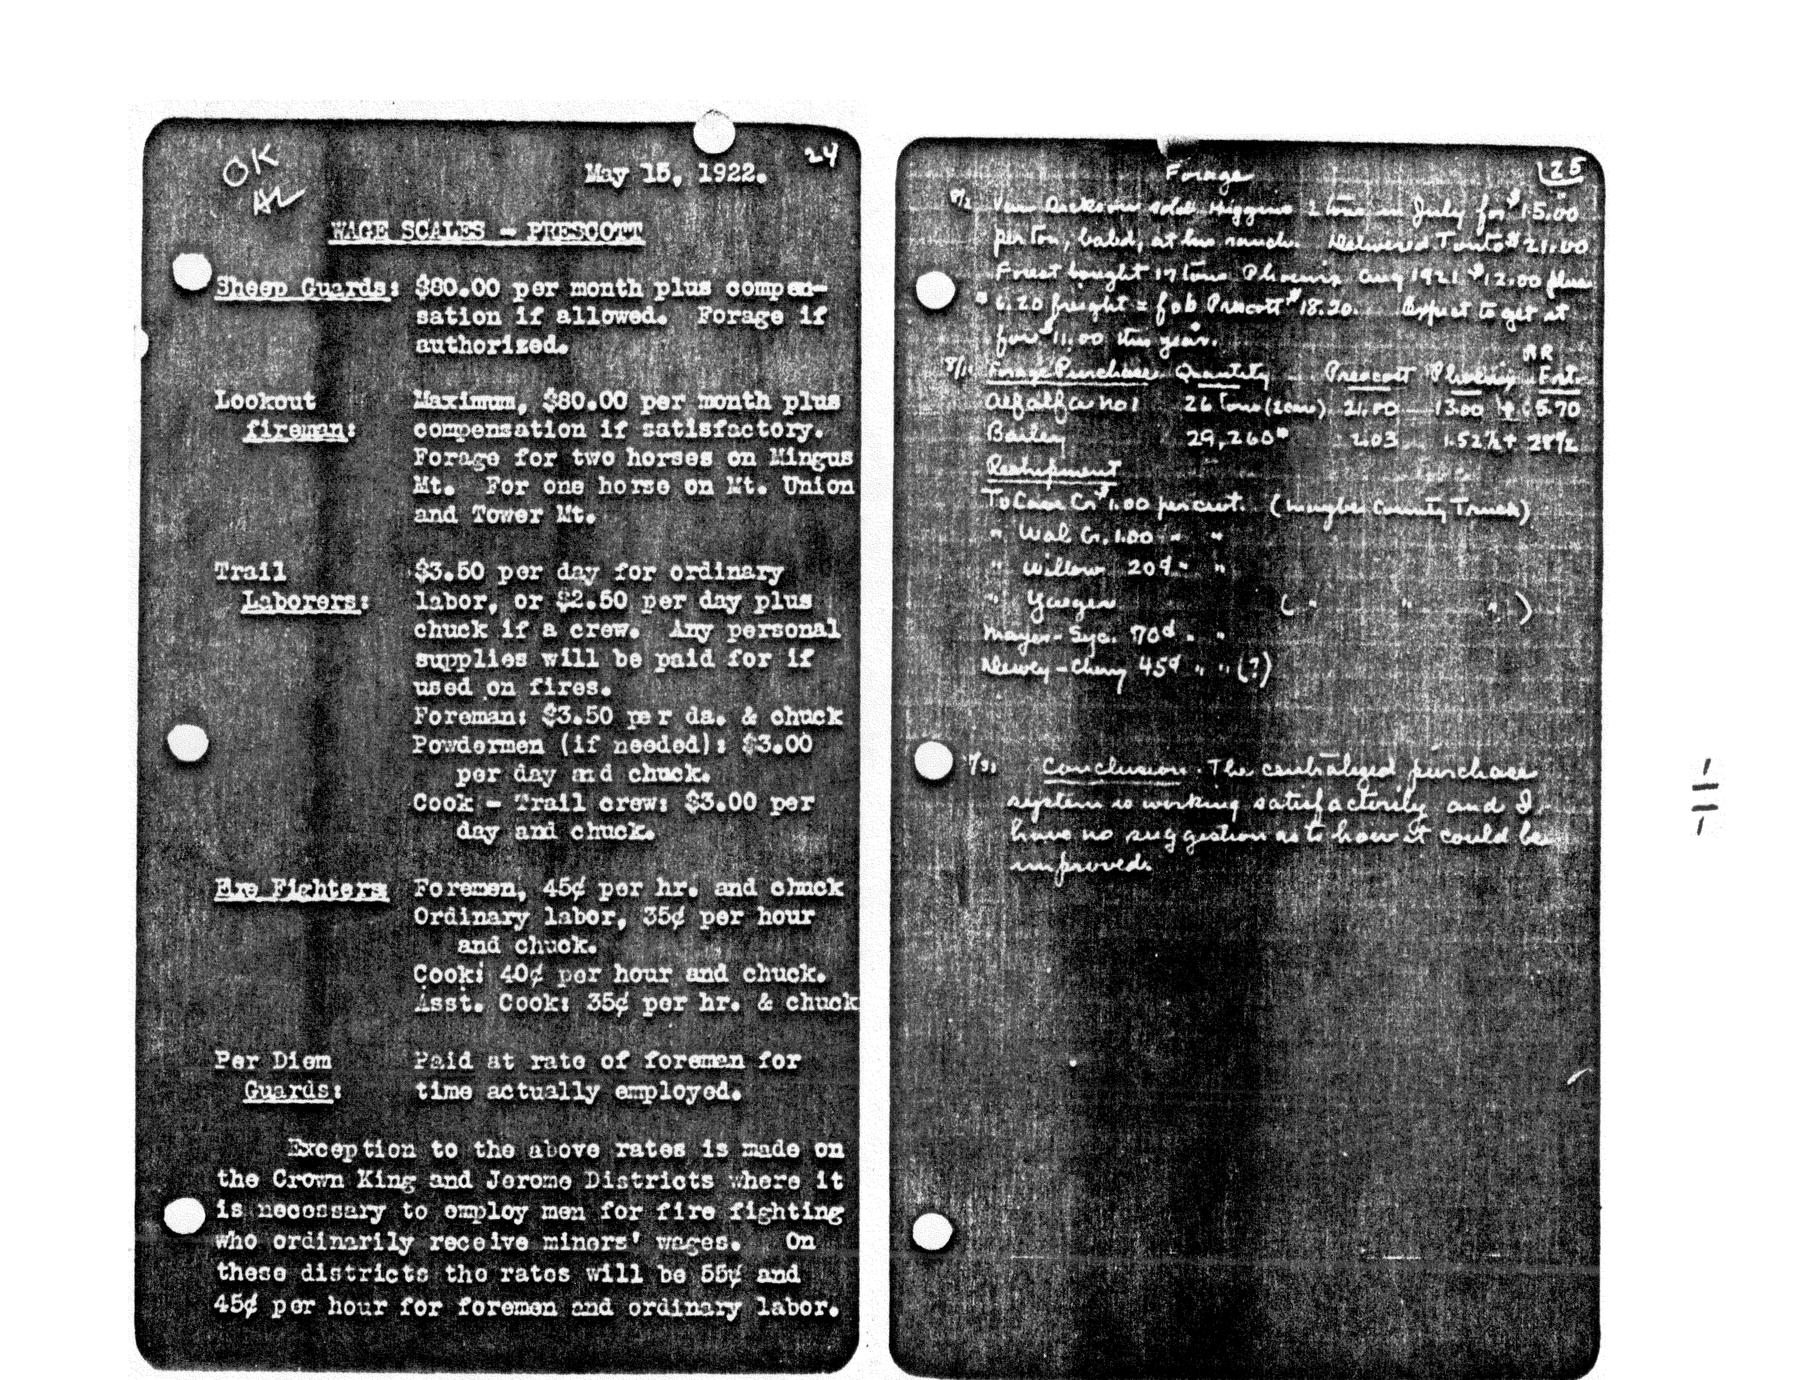 OK
AL
24
May 15, 1922.
WAGE SCALES - PRESCOTT
Sheep Guards: $80.00 per month plus compen-
sation if allowed. Forage if
authorized.
Lookout Maximum, $80.00 per month plus
fireman: compensation if satisfactory.
Forage for two horses on Mingus
Mt. For one horse on Mt. Union
and Tower Mt.
Trail $3.50 per day for ordinary
Laborers: labor, or $2.50 per day plus
chuck if a crew. Any personal
supplies will be paid for if
used on fires.
Foreman: $3.50 per da. & chuck
Powdermen (if needded): $3.00
per day and chuck.
Cook - Trail crew: $3.00 per
day and chuck.
Fire Fighters Foremen, 45¢ per hr. and chuck
Ordinary labor, 35¢ per hour
and chuck.
Cook: 40¢ per hour and chuck.
Asst. Cook: 35¢ per hr. & chuck
Per Diem Paid at rate of foreman for
Guards: time actually employed.
Exception to the above rates is made on
the Crown King and Jerome Districts where it
is necessary to employ men for fire fighting
who ordinarily receive miners' wages. On
these districts the rates will be 55¢ and
45¢ per hour for foremen and ordinary labor.
25
Forage
8/2 Van Dickson sold Higgins 2 tons in July for $15.00
per ton, baled, at his ranch. Delivered Tonto $21.00
Forest bought 17 tons Phoenix Aug 1921 $12.00 plus
$6.20 freight = fob Prescott $18.20. Expect to get at
for $11.00 this year.
RR
Forage Purchase Quantity Prescott Phoenix Frt.
Alfalfa no 1 26 Tons 13.00 + 5.70
Barley 29,260# 2.03 1.52½ + 28½
Reshipment
To Cave Cr $1.00 per cwt. (maybe County Truck)
" Wal Cr. 1.00 " "
" Willow 20¢ " "
" Yaeger ( " " " )
Mayer-Syc. 70¢ " "
Dewey-Cherry 45¢ " " (?)
Conclusion. The centralized purchase
system is working satisfactorily and I
have no suggestion as to how it could be
improved.